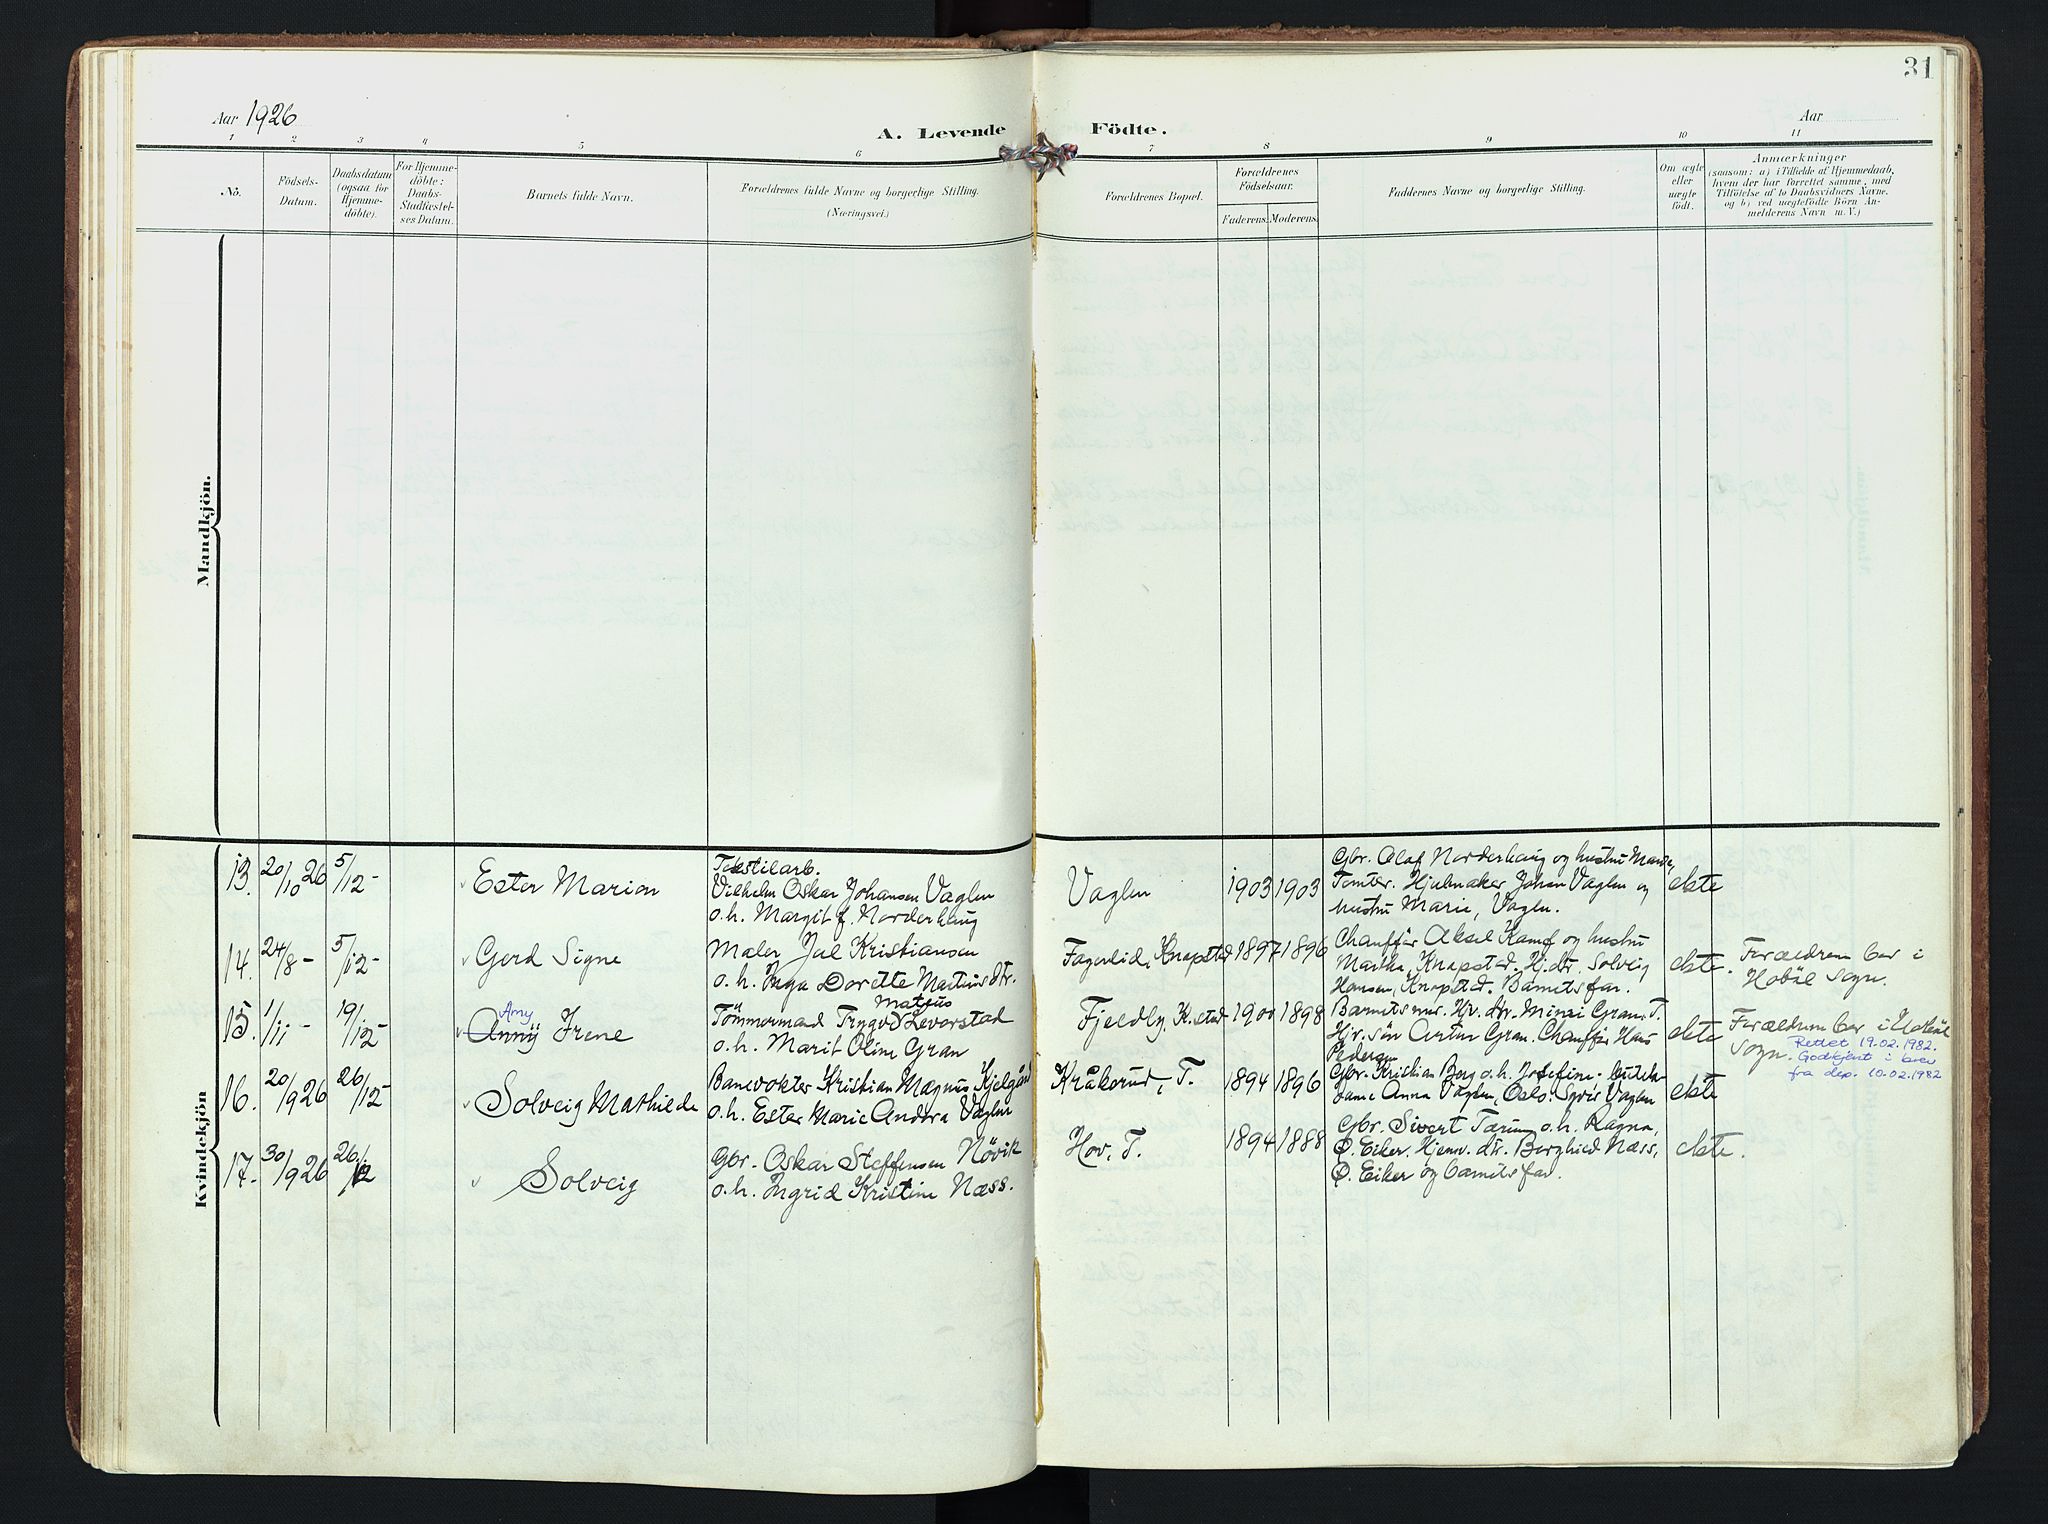 31
Aar 1926
A. Levende Födte.
Aar
1 2 3 4 5 6 7 8 9 10 11
No.
Födsels-
Datum.
Daabsdatum
(ogsaa for
Hjemme-
döbte).
For Hjemme-
döbte:
Daabs-
Stadfæstel-
ses Datum.
Barnets fulde Navn.
Forældrenes fulde Navne og borgerlige Stilling.
(Næringsvei.)
Forældrenes Bopæl.
Forældrenes
Födselsaar.
Faderens. Moderens.
Faddernes Navne og borgerlige Stilling.
Om ægte
eller
uægte
födt.
Anmærkninger
(saasom: a) i Tilfælde af Hjemmedaab,
hvem der har forrettet samme, med
Tilföielse af to Daabsvidners Navne.
og b) ved uægtefödte Börn An-
melderens Navn m. V.)
Mandkjön.
Kvindekjön
13. 20/10 26 5/12-
Ester Marion
Tekstilarb.
Vilhelm Oskar Johansen Vaglen
o.h. Margit f. Norderhaug
Vaglen
1903 1903
Gbr. Olaf Norderhaug og hustru Marde,
Tomter. Hjulmaker Johan Vaglen og
hustru Marie, Vaglen.
ekte
14. 24/8- 5/12-
Gerd Signe
Maler Jul Kristiansen
o.h. Inga Dorette Martinsdtr.
Fagerlid, Knapstad
1897 1896
Chauffør Aksel Kamf og hustru
Martha, Knapstad. Hj.dtr. Solveig
Hansen, Knapstad. Barnets far.
ekte.
Forældrene bor i
Hobøl sogn.
15. 1/11- 19/12-
Amy
Anny Irene
Mateus
Tömmermand Trygve Levorstad
o.h. Marit Oline Gran
Fjeldly, K.stad
1900 1898
Barnets mor. Hjv. dtr. Minzi Gran, T.
Hjv. søn Artur Gran. Chauffør Hans
Pedersen
ekte
Forældrene bor i Hobøl
sogn.
Rettet 19.02.1982.
Godkjent i brev
fra dep. 10.02.1982
16. 20/9 26 26/12-
Solveig Mathilde
Banevokter Kristian Magnus Kjelgård
o.h. Ester Marie Andora Vaglen
Kråkerud, T.
1894 1896
Gbr. Kristian Berg o.h. Josefine. Butik-
dame Anna Vaglen, Oslo. Syvér Vaglen
ekte
17. 30/9 26 26/12
Solveig
Gbr. Oskar Steffensen Nøvik
o.h. Ingrid Kristine Næss.
Hov, T.
1894 1888
Gbr. Sivert Tærum o.h. Ragna,
Ø. Eiker. Hjemv. dtr. Borghild Næss,
Ø. Eiker og barnets far.
ekte.